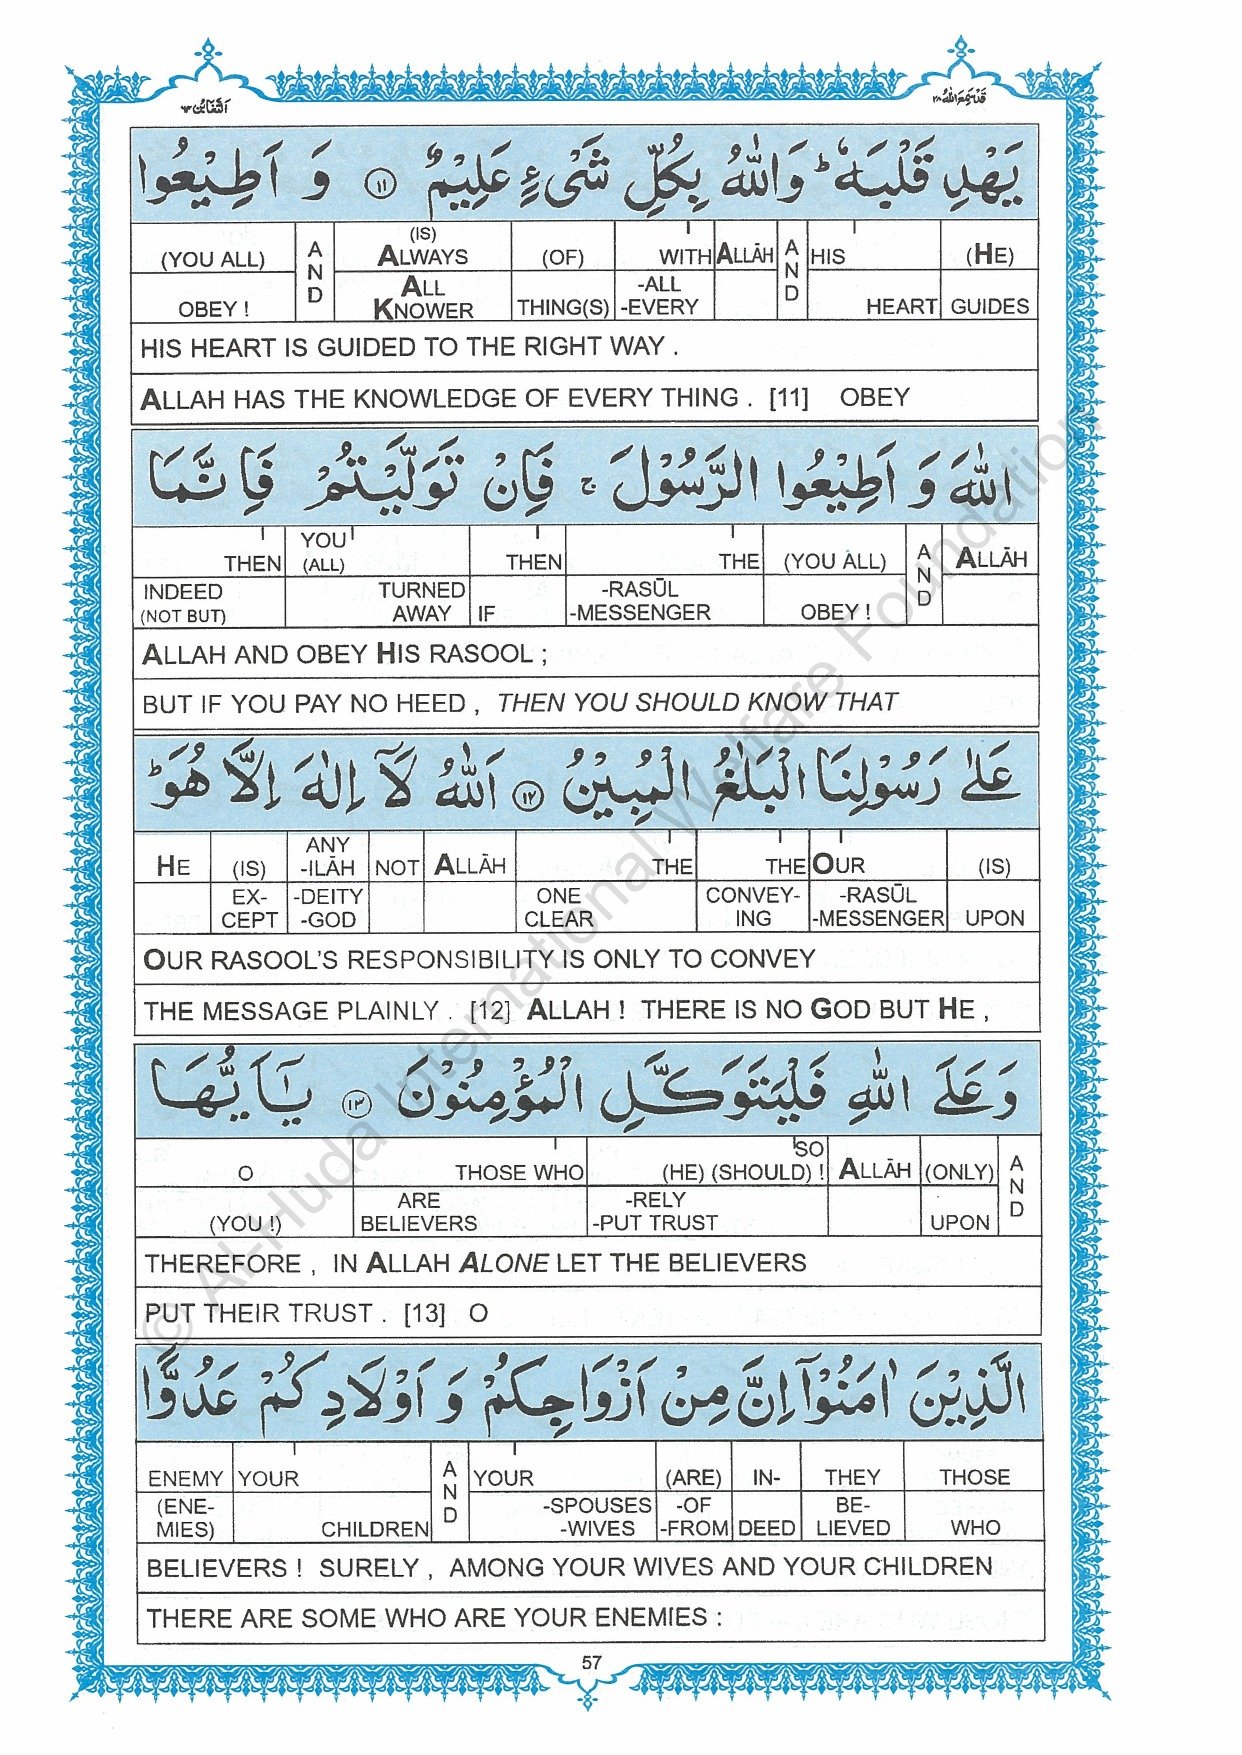 التغابن ٦٤
قد سمع الله ٢٨
يَهْدِ قَلْبَهٗ ؕ وَاللّٰهُ بِكُلِّ شَیْءٍ عَلِيْمٌ ﴿۱۱﴾ وَ اَطِيْعُوا
(YOU ALL) AND (IS) ALWAYS (OF) WITH ALLĀH AND HIS (HE)
OBEY ! ALL KNOWER THING(S) -ALL -EVERY HEART GUIDES
HIS HEART IS GUIDED TO THE RIGHT WAY .
ALLAH HAS THE KNOWLEDGE OF EVERY THING . [11] OBEY
اللّٰهَ وَ اَطِيْعُوا الرَّسُوْلَ ۚ فَاِنْ تَوَلَّيْتُمْ فَاِنَّمَا
THEN YOU (ALL) THEN THE (YOU ALL) AND ALLĀH
INDEED (NOT BUT) TURNED AWAY IF -RASŪL -MESSENGER OBEY !
ALLAH AND OBEY HIS RASOOL ;
BUT IF YOU PAY NO HEED , THEN YOU SHOULD KNOW THAT
عَلٰی رَسُوْلِنَا الْبَلٰغُ الْمُبِيْنُ ﴿۱۲﴾ اَللّٰهُ لَاۤ اِلٰهَ اِلَّا هُوَ ؕ
HE (IS) ANY -ILĀH NOT ALLĀH THE THE OUR (IS)
EX- CEPT -DEITY -GOD ONE CLEAR CONVEY- ING -RASŪL -MESSENGER UPON
OUR RASOOL'S RESPONSIBILITY IS ONLY TO CONVEY
THE MESSAGE PLAINLY . [12] ALLAH ! THERE IS NO GOD BUT HE ,
وَ عَلَی اللّٰهِ فَلْيَتَوَكَّلِ الْمُؤْمِنُوْنَ ﴿۱۳﴾ يٰۤاَيُّهَا
O THOSE WHO SO (HE) (SHOULD) ! ALLĀH (ONLY) AND
(YOU !) ARE BELIEVERS -RELY -PUT TRUST UPON
THEREFORE , IN ALLAH ALONE LET THE BELIEVERS
PUT THEIR TRUST . [13] O
الَّذِيْنَ اٰمَنُوْۤا اِنَّ مِنْ اَزْوَاجِكُمْ وَ اَوْلَادِكُمْ عَدُوًّا
ENEMY YOUR AND YOUR (ARE) IN- THEY THOSE
(ENE- MIES) CHILDREN -SPOUSES -WIVES -OF -FROM DEED BE- LIEVED WHO
BELIEVERS ! SURELY , AMONG YOUR WIVES AND YOUR CHILDREN
THERE ARE SOME WHO ARE YOUR ENEMIES :
57
© Al-Huda International Welfare Foundation